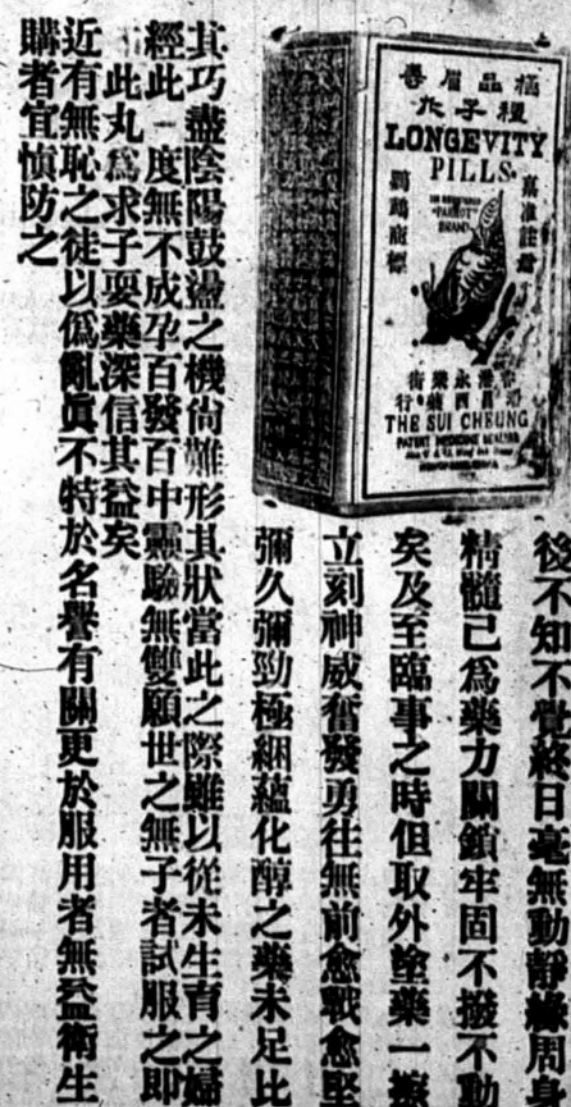 極品眉壽
種子丸
LONGEVITY
PILLS
嘉准註冊
鸚鵡商標
"PARROT"
BRAND
香港永樂街
瑞昌西藥行
THE SUI CHEUNG
PATENT MEDICINE DEALERS
後不知不覺終日毫無動靜緣周身
精髓已爲藥力關鎖牢固不撥不動
矣及至臨事之時但取外塗藥一擦
立刻神威奮發勇往無前愈戰愈堅
彌久彌勁極絪蘊化醇之藥未足比
其巧盡陰陽鼓盪之機尙難形其狀當此之際雖以從未生育之婦
經此一度無不成孕百發百中靈驗無雙願世之無子者試服之卽
此丸爲求子要藥深信其益矣
近有無恥之徒以僞亂眞不特於名譽有關更於服用者無益衞生
購者宜愼防之